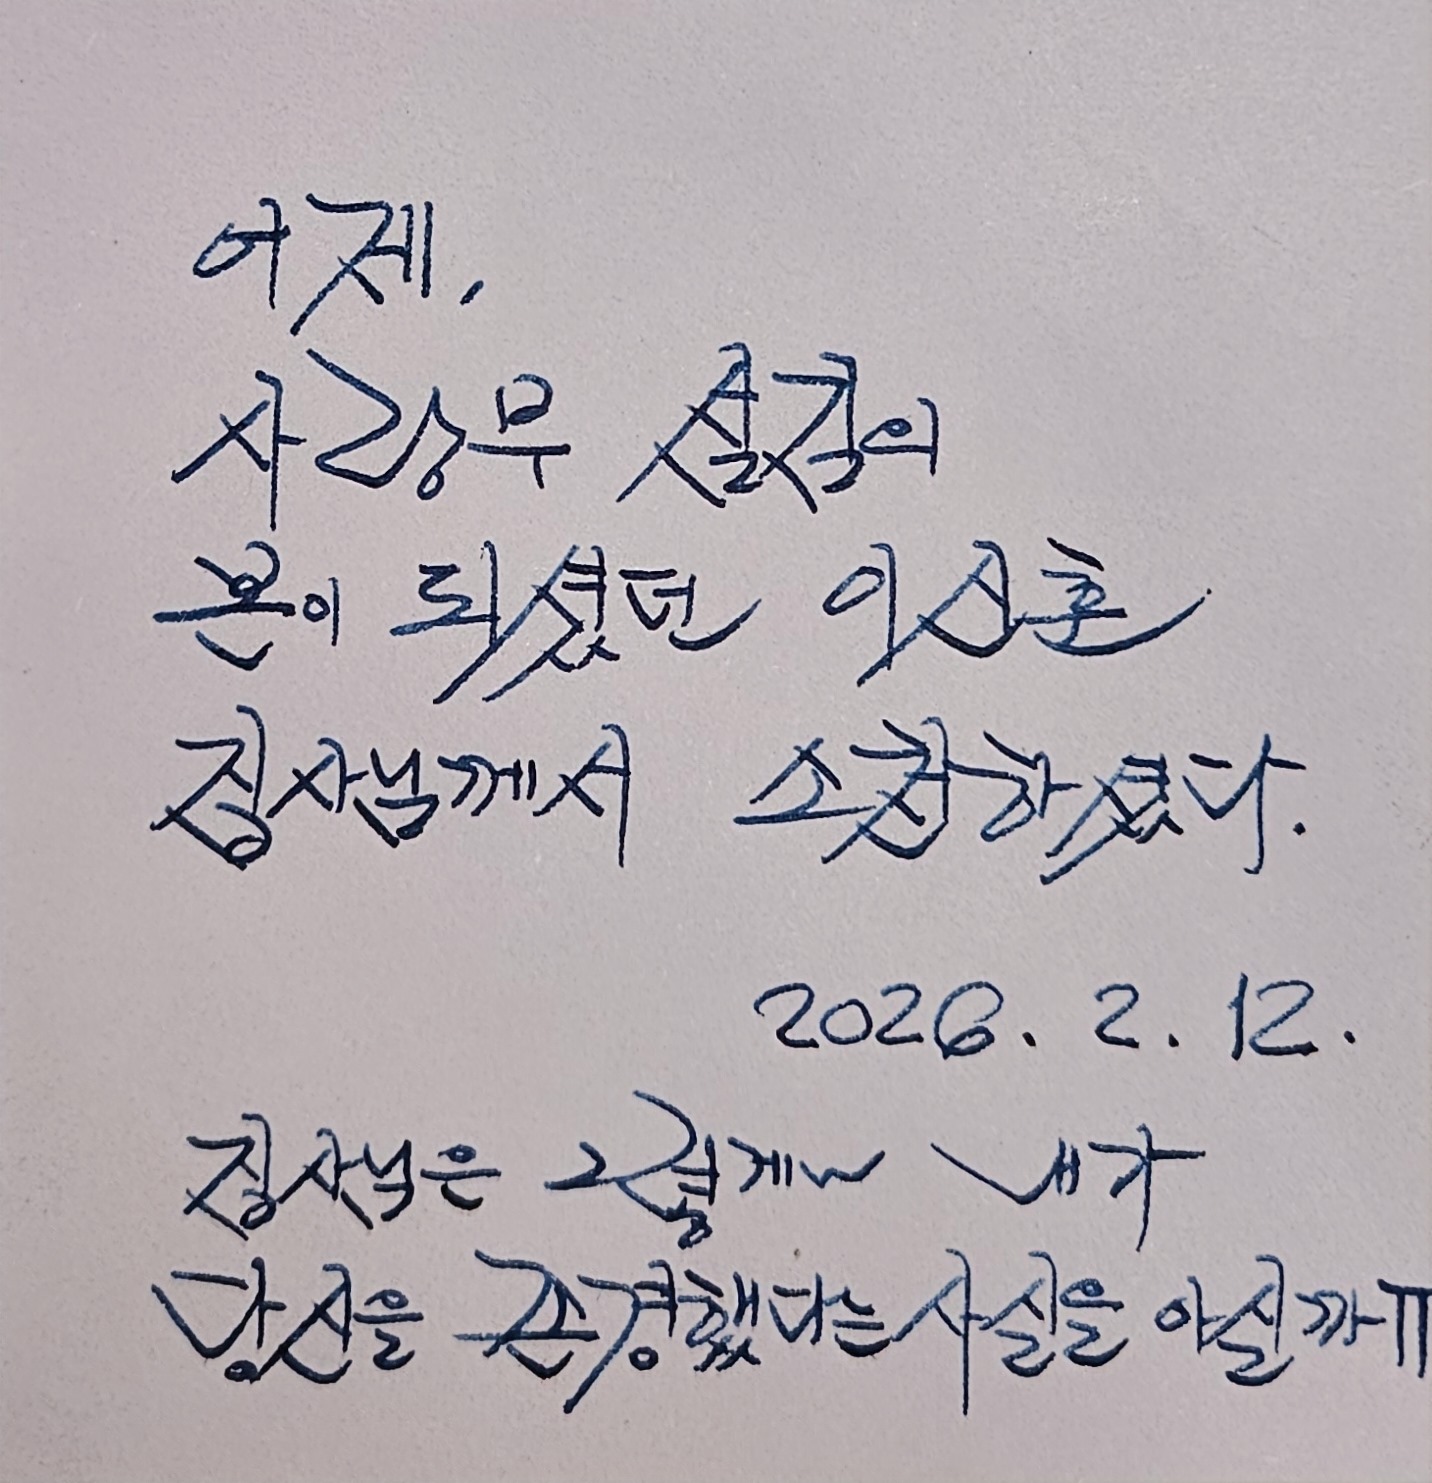 어제,
사랑부 섬김의
본이 되셨던 이신훈
집사님께서 소천하셨다.
2026. 2. 12.
집사님은 그렇게나 내가
당신을 존경했다는 사실을 아실까ㅠ